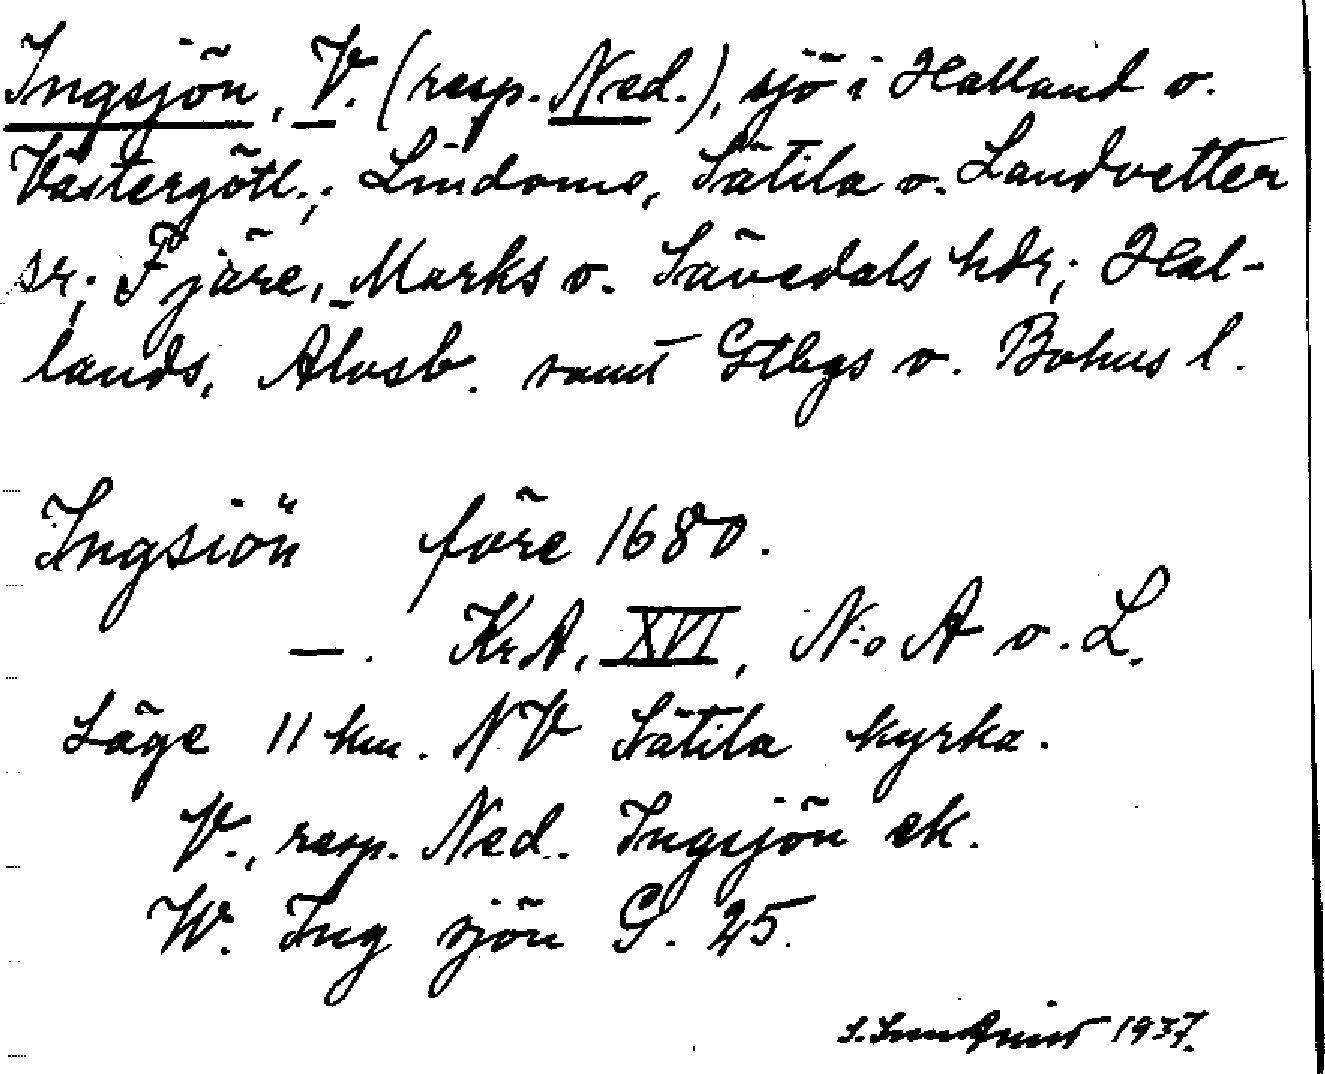 Ingsjön, V. (resp. Ned.), sjö i Halland o.
Västergötl.; Lindome, Sätila o. Landvetter
sr; Fjäre, Marks o. Sävedals hdr; Hal-
lands, Älvsb. samt Gtbgs o. Bohus l.
Ingsiön före 1680.
—. KrA, XVI, N:o A o. L.
Läge 11 km. NV Sätila kyrka.
V., resp. Ned. Ingsjön ek.
W. Ing sjön G. 25.
S. 1937.